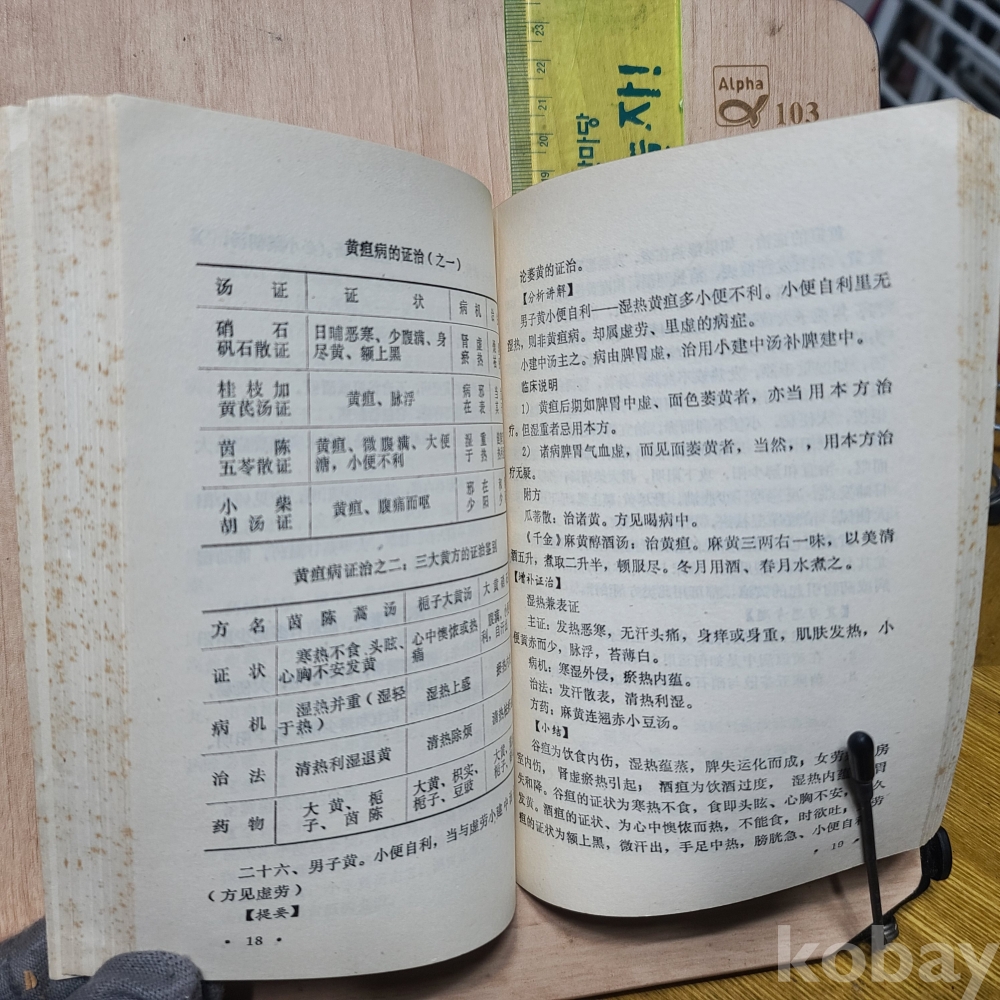 23
22
21
20
19
자!
마당
Alpha
103
黄疸病的证治(之一)
汤 证 证 状 病 机
硝 石 日晡恶寒、少腹满、身 肾 虚
矾石散证 尽黄、额上黑 瘀 热
桂 枝 加 黄疸、脉浮 病 邪
黄芪汤证 在 表
茵 陈 黄疸、微腹满、大便 湿 重
五苓散证 溏，小便不利 于 热
小 柴 黄疸、腹痛而呕 邪 在
胡 汤 证 少 阳
黄疸病证治之二：三大黄方的证治鉴别
方 名 茵 陈 蒿 汤 栀子大黄汤 大 黄
证 状 寒热不食、头眩、 心中懊侬或热
心胸不安发黄 痛
病 机 湿热并重(湿轻 湿热上盛
于热)
治 法 清热利湿退黄 清热除烦
药 物 大 黄、栀 大黄、枳实、
子、茵 陈 栀子、豆豉
二十六、男子黄。小便自利，当与虚劳小建中
(方见虚劳)
【提要】
• 18 •
论萎黄的证治。
【分析讲解】
男子黄小便自利——湿热黄疸多小便不利。小便自利里无
湿热，则非黄疸病。却属虚劳、里虚的病症。
小建中汤主之。病由脾胃虚，治用小建中汤补脾建中。
临床说明
1) 黄疸后期如脾胃中虚、面色萎黄者，亦当用本方治
疗。但湿重者忌用本方。
2) 诸病脾胃气血虚，而见面萎黄者，当然，，用本方治
疗无疑。
附方
瓜蒂散：治诸黄。方见暍病中。
《千金》麻黄醇酒汤：治黄疸。麻黄三两右一味，以美清
酒五升，煮取二升半，顿服尽。冬月用酒、春月水煮之。
【增补证治】
湿热兼表证
主证：发热恶寒，无汗头痛，身痒或身重，肌肤发热，小
便黄赤而少，脉浮，苔薄白。
病机：寒湿外侵，瘀热内蕴。
治法：发汗散表，清热利湿。
方药：麻黄连翘赤小豆汤。
【小结】
谷疸为饮食内伤，湿热蕴蒸，脾失运化而成，女劳 房
室内伤，肾虚瘀热引起，酒疸为饮酒过度，湿热内 胃
失和降。谷疸的证状为寒热不食，食即头眩、心胸不安， 久
发黄。酒疸的证状、为心中懊侬而热，不能食，时欲吐， 劳
疸的证状为额上黑，微汗出，手足中热，膀胱急、小便自利
• 19 •
kobay